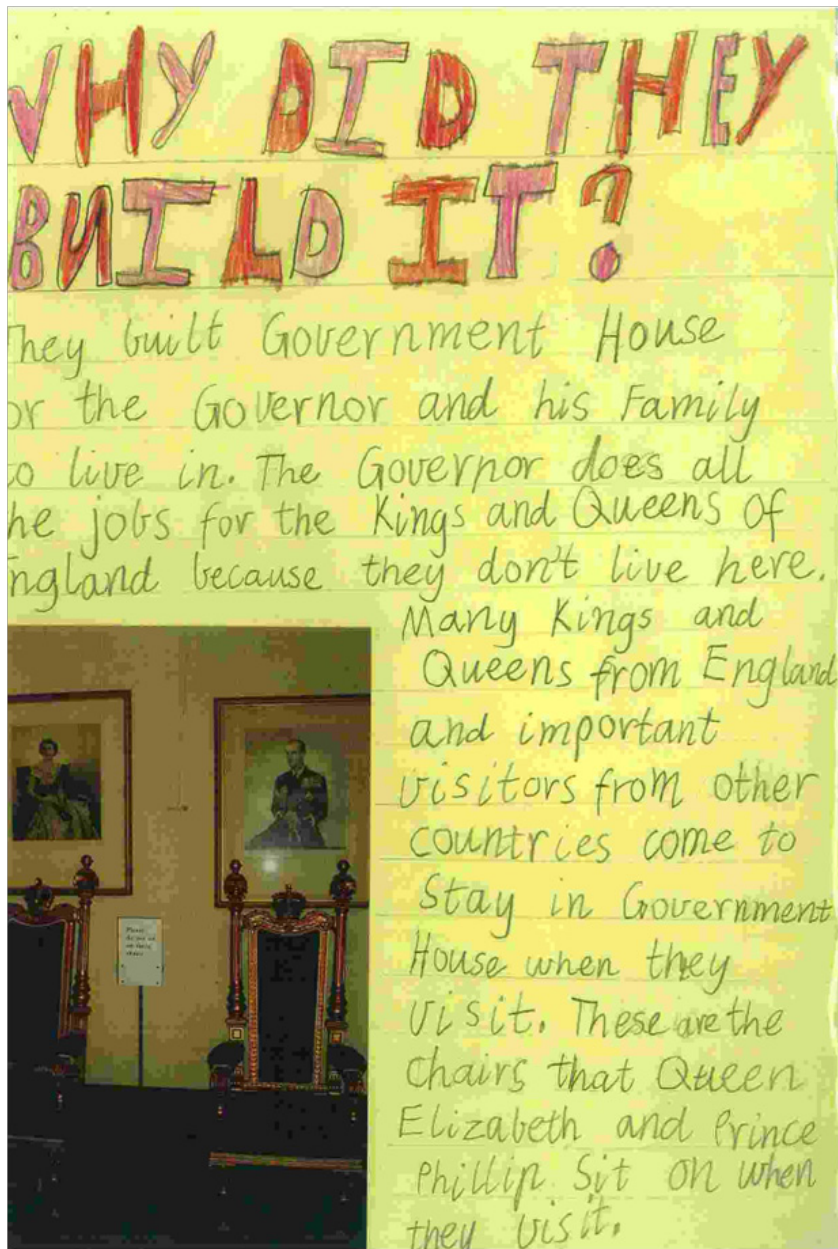 WHY DID THEY
BUILD IT?
They built Government House
or the Governor and his Family
to live in. The Governor does all
he jobs for the Kings and Queens of
England because they don't live here.
Many Kings and
Queens from England
and important
visitors from other
countries come to
Stay in Government
House when they
visit. These are the
Chairs that Queen
Elizabeth and Prince
Phillip Sit on when
they visit.
Please